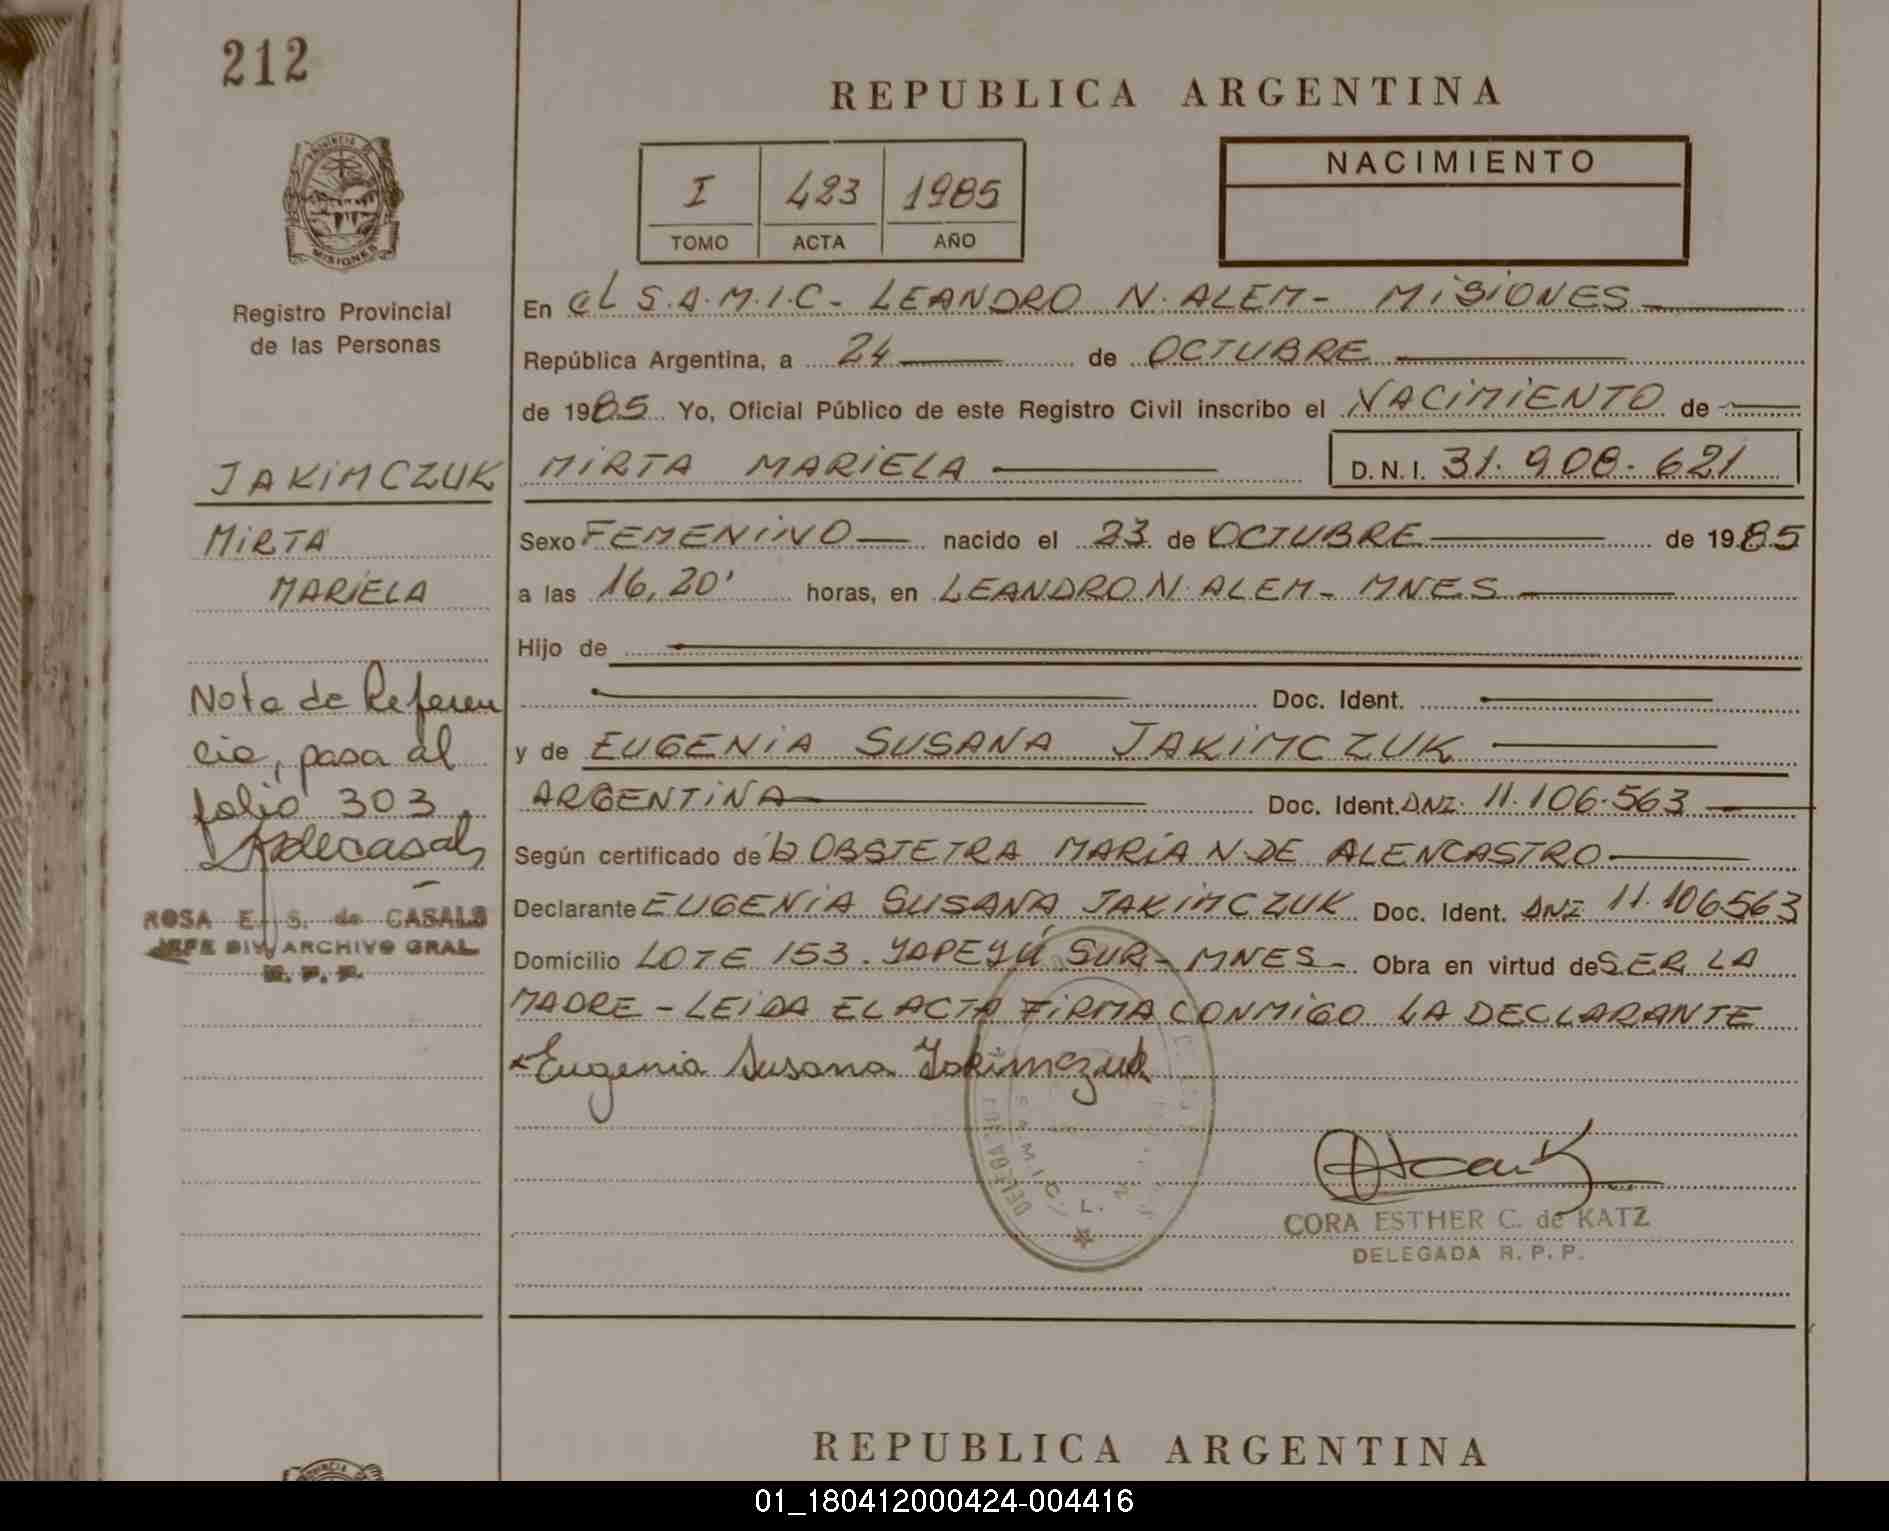 212
REPUBLICA ARGENTINA
PROVINCIA DE
MISIONES
Registro Provincial
de las Personas
I 423 1985
TOMO ACTA AÑO
NACIMIENTO
En el S.A.M.I.C- LEANDRO N. ALEM- MISIONES
República Argentina, a 24 de OCTUBRE
de 1985 Yo, Oficial Público de este Registro Civil inscribo el NACIMIENTO de
JAKIMCZUK MIRTA MARIELA D.N.I. 31.908.621
MIRTA
MARIELA
Sexo FEMENINO nacido el 23 de OCTUBRE de 1985
a las 16,20' horas, en LEANDRO N. ALEM- MNES
Hijo de
Doc. Ident.
Nota de Referen
cia, pasa al
folio 303
ROSA E. S. de CASALS
JEFE DIV. ARCHIVO GRAL
R. P. P.
y de EUGENIA SUSANA JAKIMCZUK
ARGENTINA Doc. Ident. DNI. 11.106.563
Según certificado de la OBSTETRA MARIA N DE ALENCASTRO
Declarante EUGENIA SUSANA JAKIMCZUK Doc. Ident. DNI 11.106563
Domicilio LOTE 153. YAPEYÚ SUR- MNES- Obra en virtud de SER LA
MADRE - LEIDA EL ACTA FIRMA CONMIGO LA DECLARANTE
Eugenia Susana Jakimczuk
S.A.M.I.C. L.
CORA ESTHER C. de KATZ
DELEGADA R. P. P.
REPUBLICA ARGENTINA
PROVINCIA
01_180412000424-004416